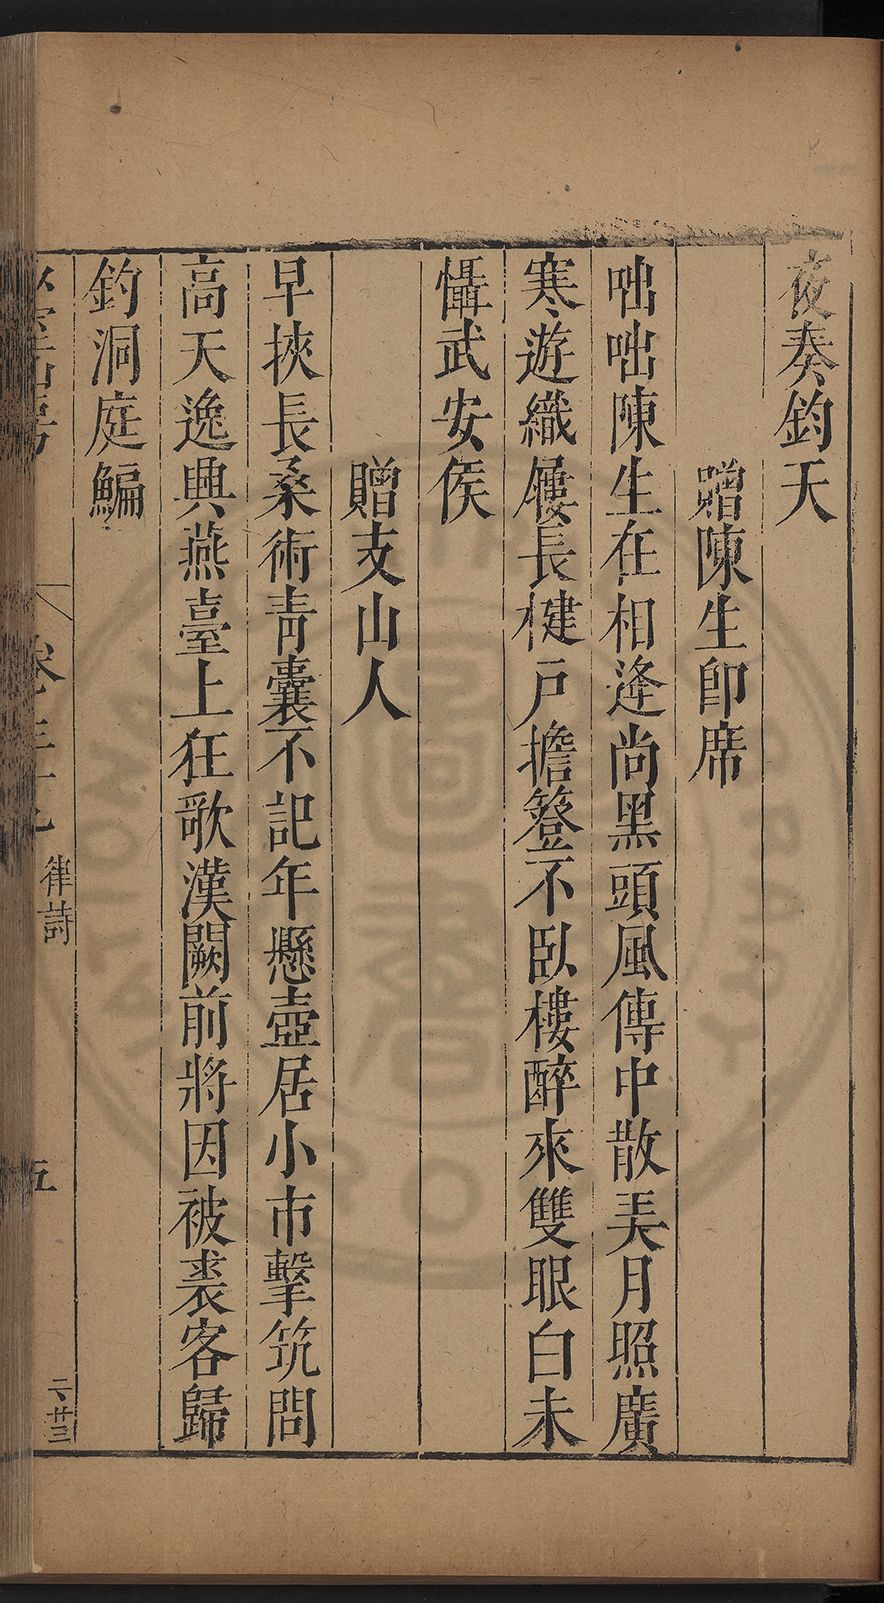 夜奏鈞天
贈陳生卽席
咄咄陳生在相逢尚黑頭風傳中散美月照廣
寒遊織屨長楗戸擔簦不臥樓醉來雙眼白未
懾武安侯
贈支山人
早挾長桑術靑囊不記年懸壺居小市擊筑問
高天逸興燕臺上狂歌漢闕前將因被裘客歸
釣洞庭鯿
律詩
五
二、廿三